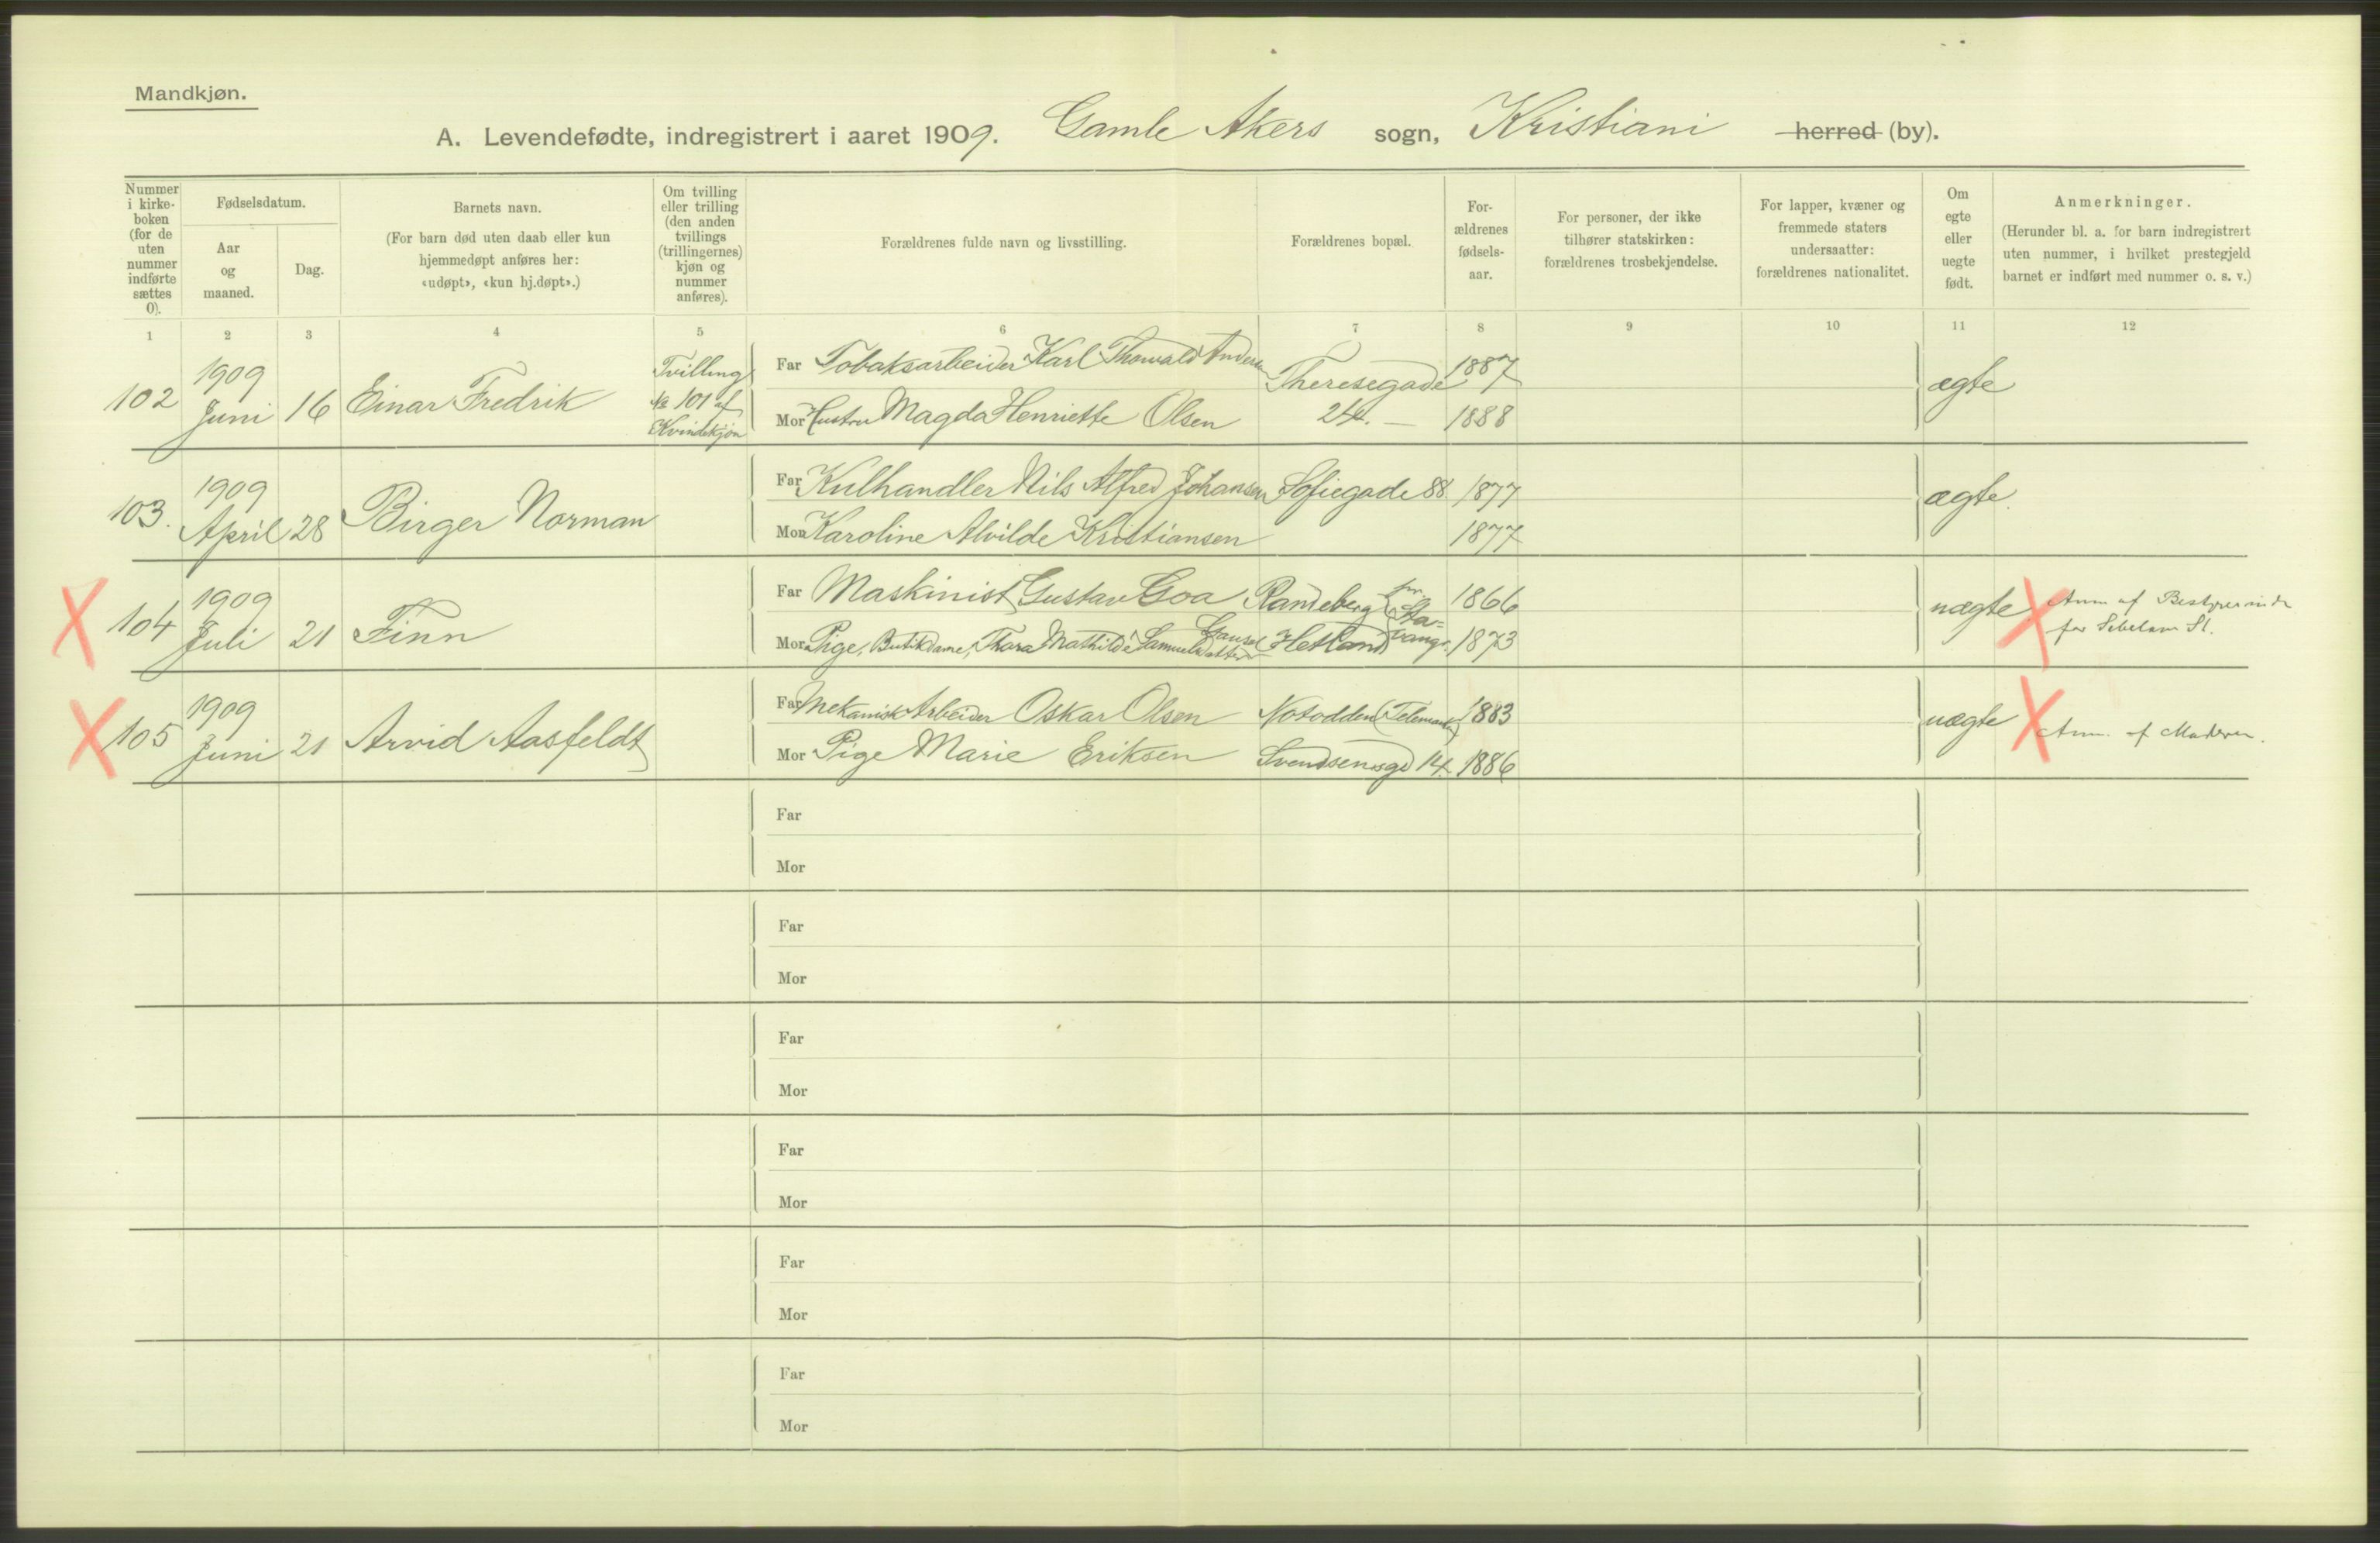 Mandkjøn.
A. Levendefødte, indregistrert i aaret 1909. Gamle Akers sogn, Kristiani herred (by).
Nummer i kirke-boken (for de uten nummer indførte sættes 0).
Fødselsdatum.
Aar og maaned.
Dag.
Barnets navn.
(For barn død uten daab eller kun hjemmedøpt anføres her: «udøpt», «kun hj.døpt».)
Om tvilling eller trilling (den anden tvillings (trillingernes) kjøn og nummer anføres).
Forældrenes fulde navn og livsstilling.
Forældrenes bopæl.
For-ældrenes fødsels-aar.
For personer, der ikke tilhører statskirken: forældrenes trosbekjendelse.
For lapper, kvæner og fremmede staters undersaatter: forældrenes nationalitet.
Om egte eller uegte født.
Anmerkninger.
(Herunder bl. a. for barn indregistrert uten nummer, i hvilket prestegjeld barnet er indført med nummer o. s. v.)
1 2 3 4 5 6 7 8 9 10 11 12
102 1909 Juni 16 Einar Fredrik Tvilling № 101 af Kvindekjøn
Far Tobaksarbeider Karl Thorvald Andersen Theresegade 1887 ægte
Mor Hustru Magda Henriette Olsen 24. 1888
103. 1909 April 28 Birger Norman
Far Kulhandler Nils Alfred Johansen Sofiegade 88 1877 ægte.
Mor Karoline Alvilde Kristiansen 1877
X 104 1909 Juli 21 Finn
Far Maskinist Gustav Goa Randeberg pr. Sta- 1866 uægte X Anm af Bestyrerinde
Mor Pige, Butikdame, Thora Mathilde Samuelsdatter Gausel Hetland vanger 1873 for St.
X 105 1909 Juni 21 Arvid Aasfeldt
Far Mekanisk Arbeider Oskar Olsen Notodden (Telemarken) 1883 uægte X Anm. af Moderen.
Mor Pige Marie Eriksen Svendsensgd 14 1886
Far
Mor
Far
Mor
Far
Mor
Far
Mor
Far
Mor
Far
Mor